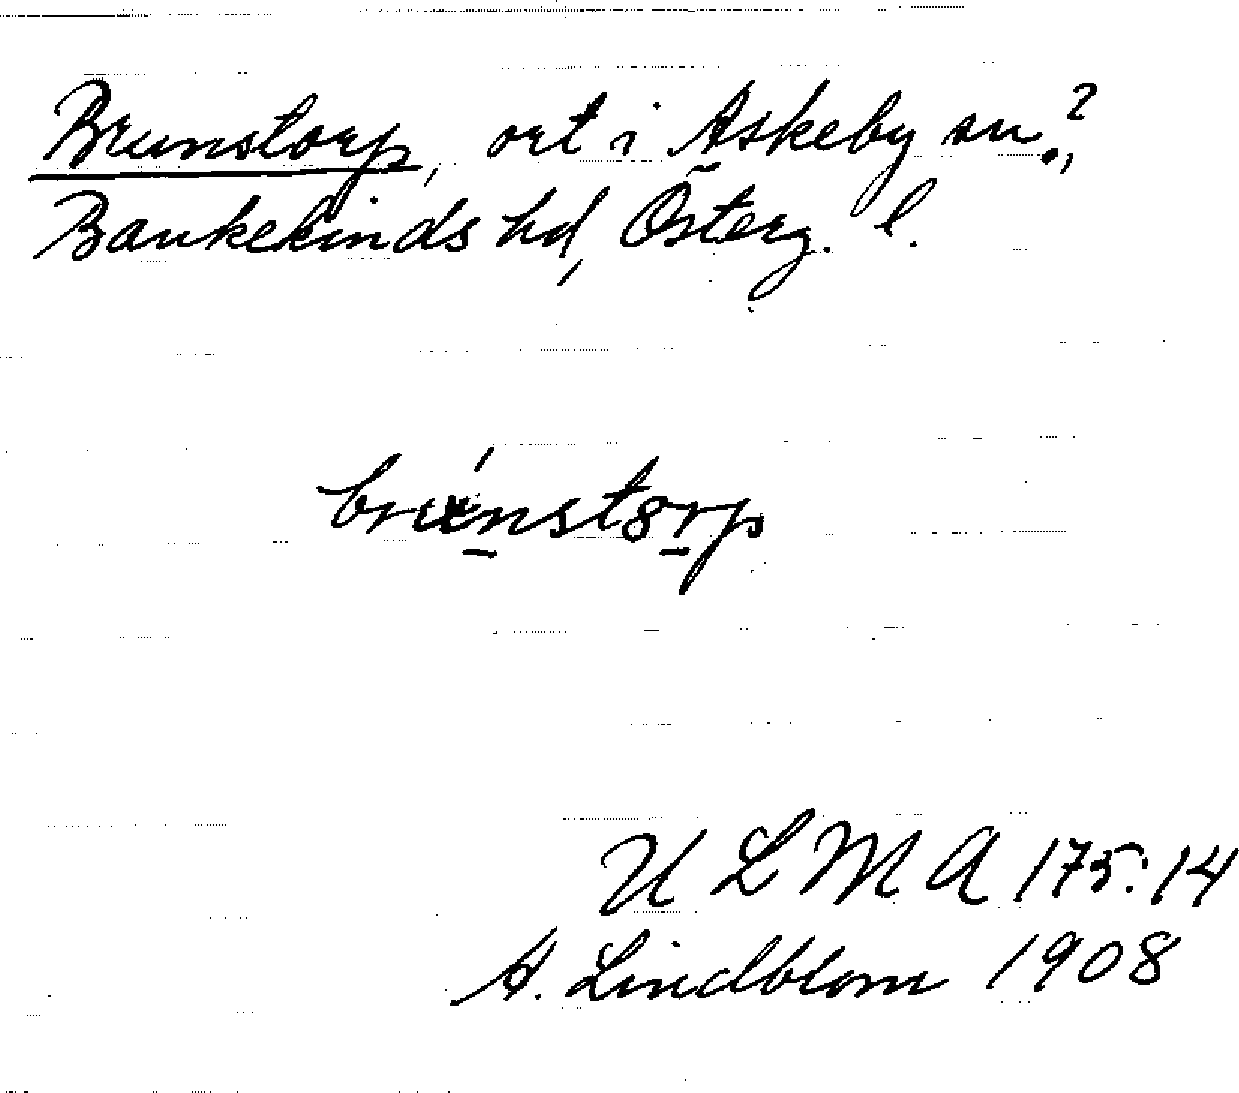 Brunstorp, ort i Askeby sn.?,
Bankekinds hd, Österg. l.
brunstorp
ULMA 175:14
A. Lindblom 1908